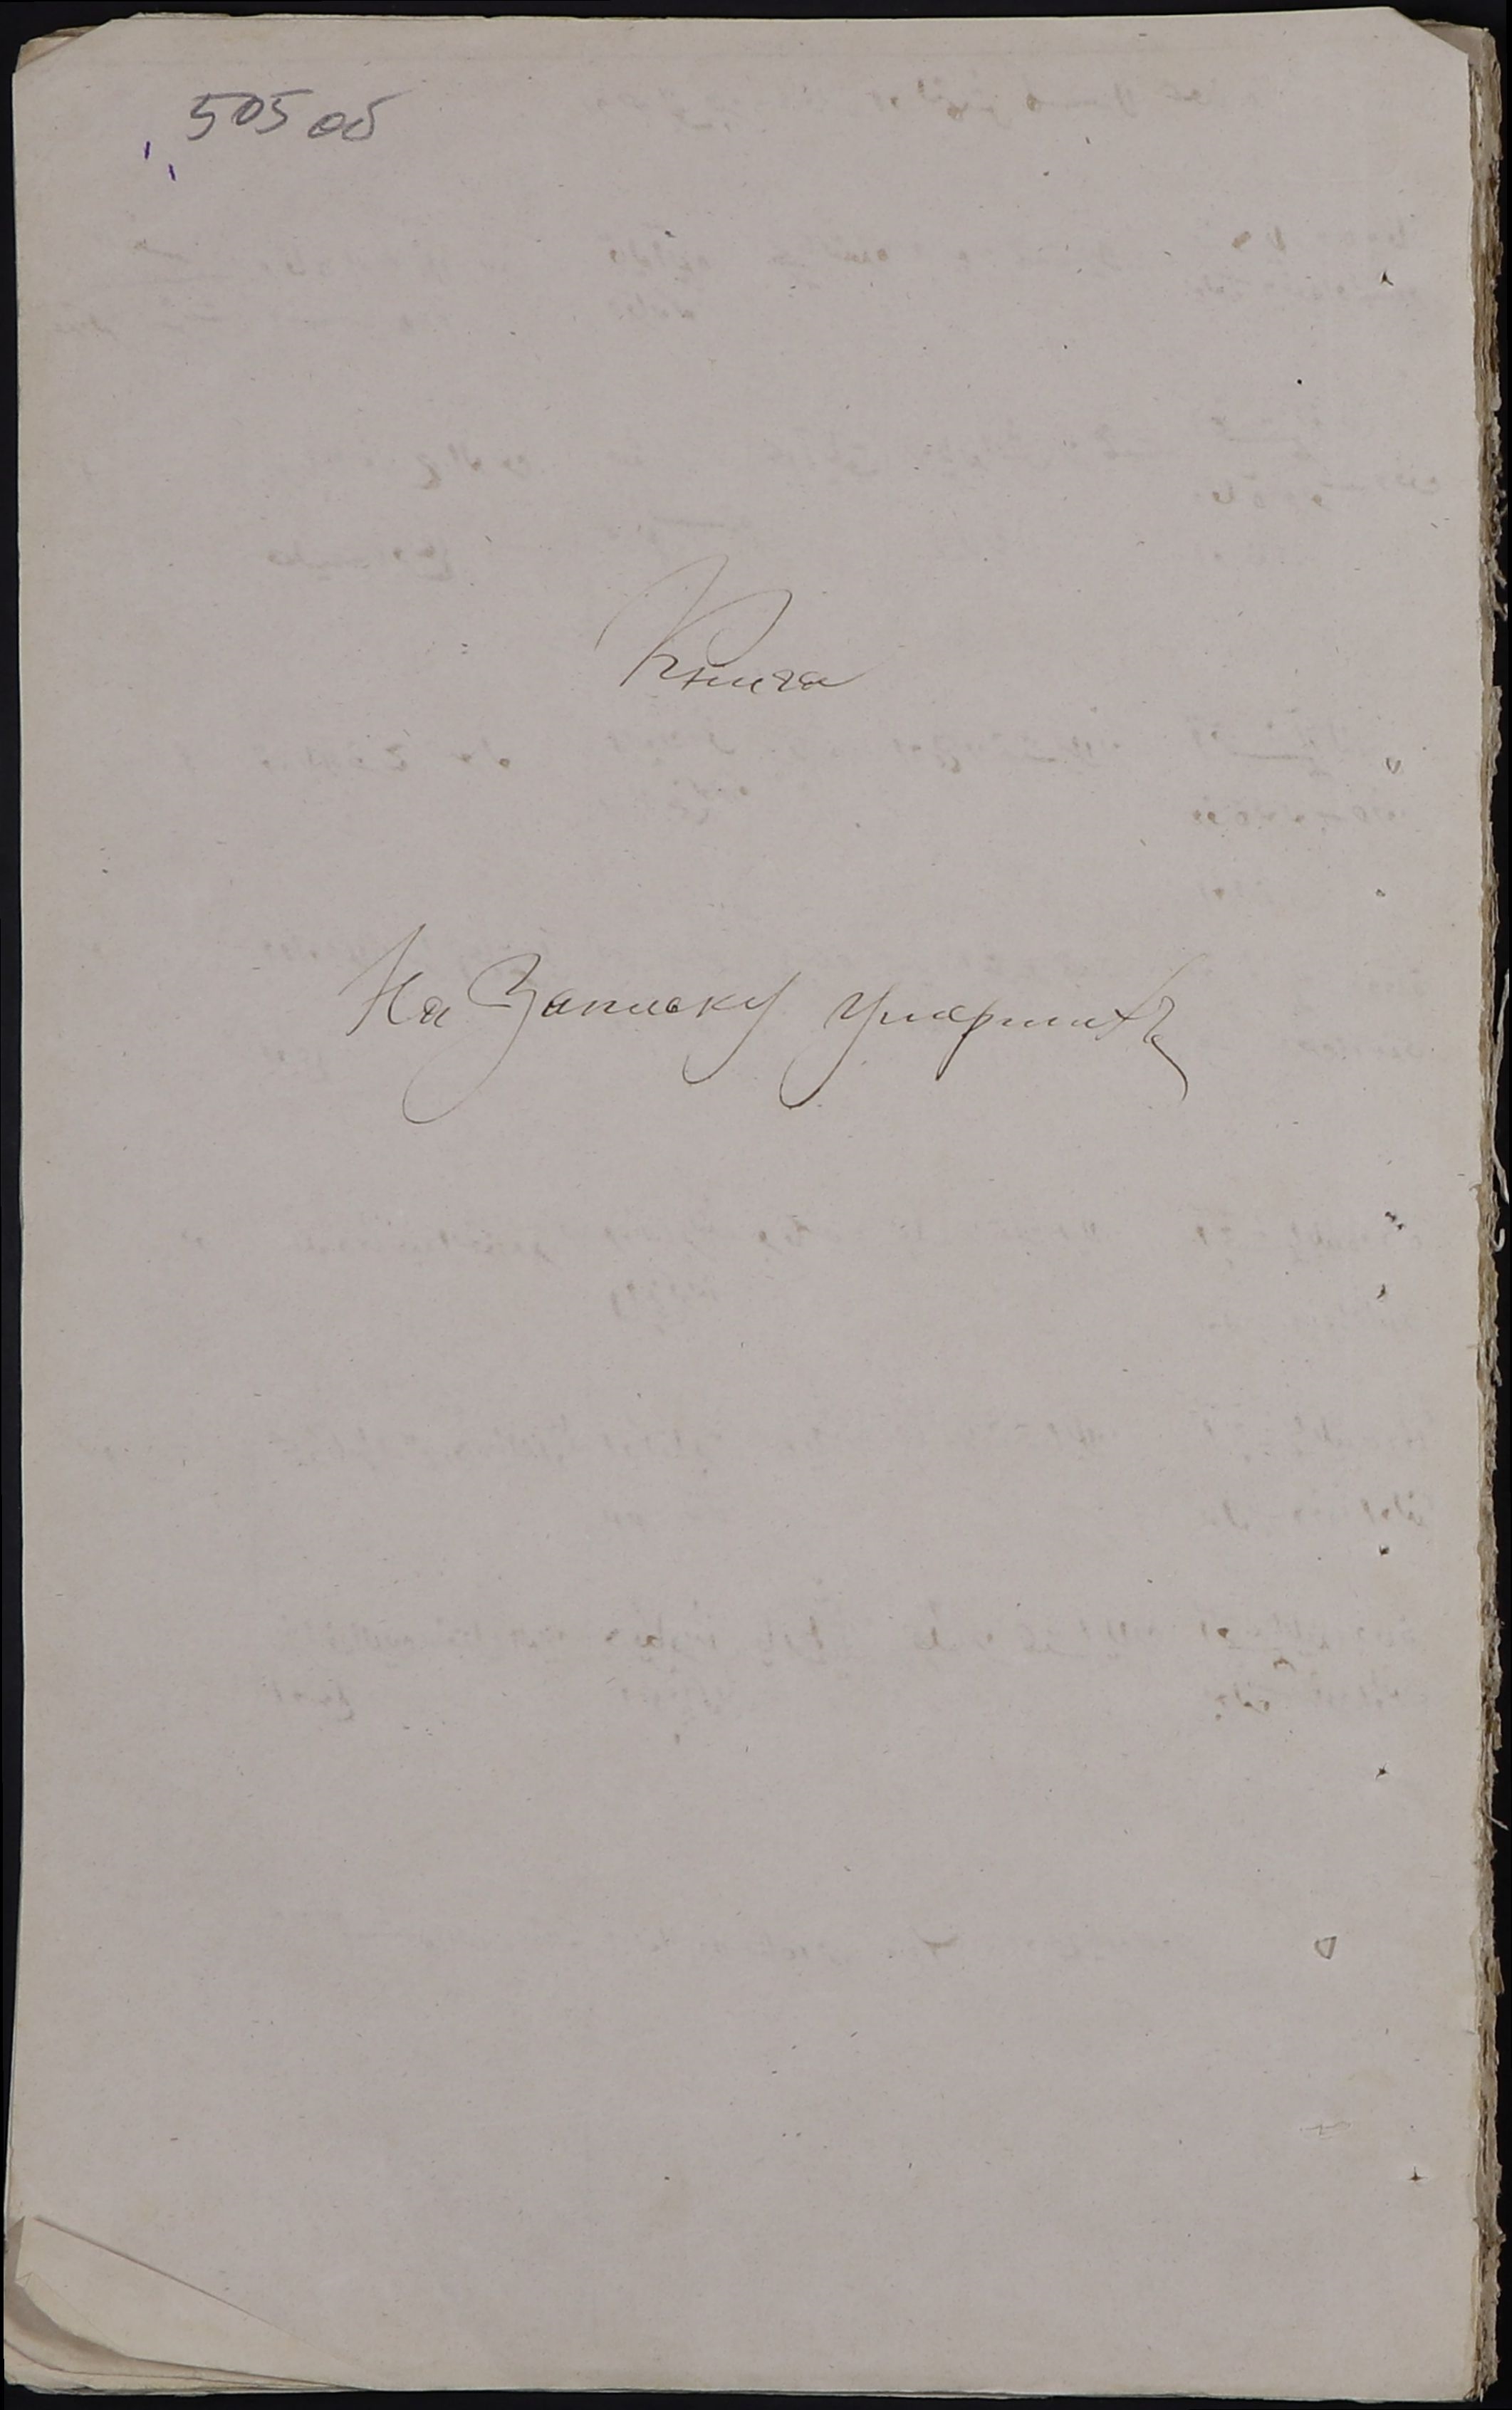 505 об
Книга
На Записку умершихъ